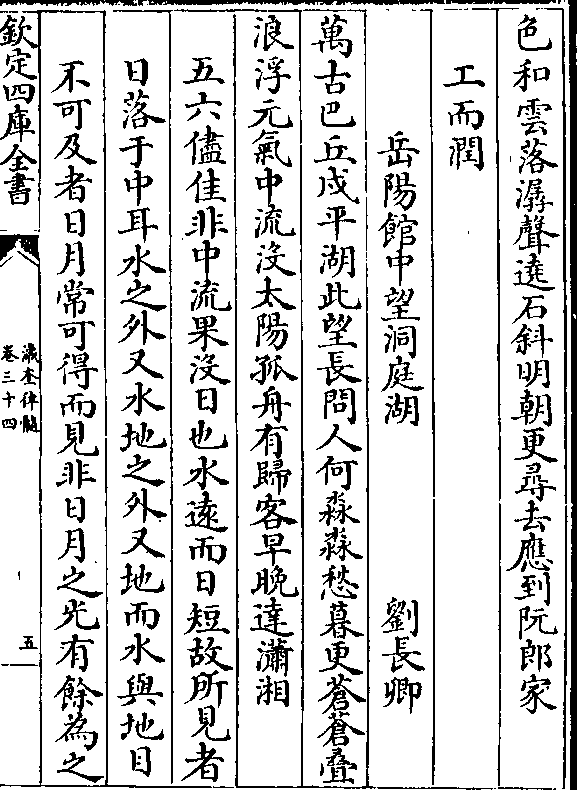 色和雲落潺聲遶石斜明朝更尋去應到阮郎家
工而潤
岳陽館中望洞庭湖 劉長卿
萬古巴丘戍平湖此望長問人何淼淼愁暮更蒼蒼疊
浪浮元氣中流没太陽孤舟有歸客早晚達瀟湘
五六儘佳非中流果没日也水逺而日短故所見者
日落于中耳水之外又水地之外又地而水與地目
不可及者日月常可得而見非日月之光有餘為之
欽定四庫全書
瀛奎律髓
卷三十四
五